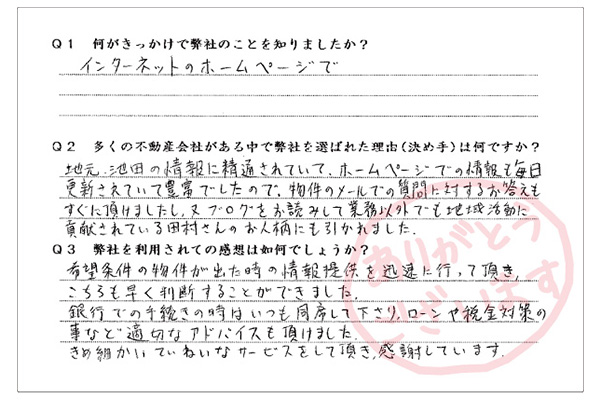 Q1 何がきっかけで弊社のことを知りましたか？
インターネットのホームページで
Q2 多くの不動産会社がある中で弊社を選ばれた理由(決め手)は何ですか？
地元、池田の情報に精通されていて、ホームページでの情報も毎日
更新されていて豊富でしたので、物件のメールでの質問に対するお答えも
すぐに頂けましたし、又ブログをお読みして業務以外でも地域活動に
貢献されている田村さんのお人柄にも引かれました。
Q3 弊社を利用されての感想は如何でしょうか？
希望条件の物件が出た時の情報提供を迅速に行って頂き、
こちらも早く判断することができました。
銀行での手続きの時はいつも同席して下さり、ローンや税金対策の
事など適切なアドバイスも頂けました。
きめ細かいていねいなサービスをして頂き、感謝しています。
ありがとう
ございます